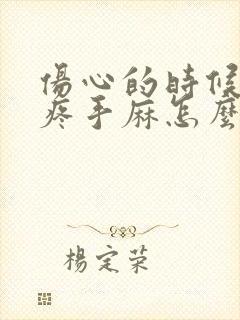 傷心的時候
疼手麻怎麼
楊定荣